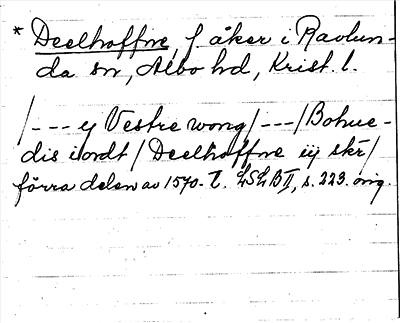 * Deelhoffne, f. åker i Ravlun-
da sn, Albo hd, Krist. l.
/--- ẏ Vestre wong/---/Bohue-
dis iordt/Deelhoffne iij skr/
förra delen av 1570-t. LSLB II, s. 223. orig.